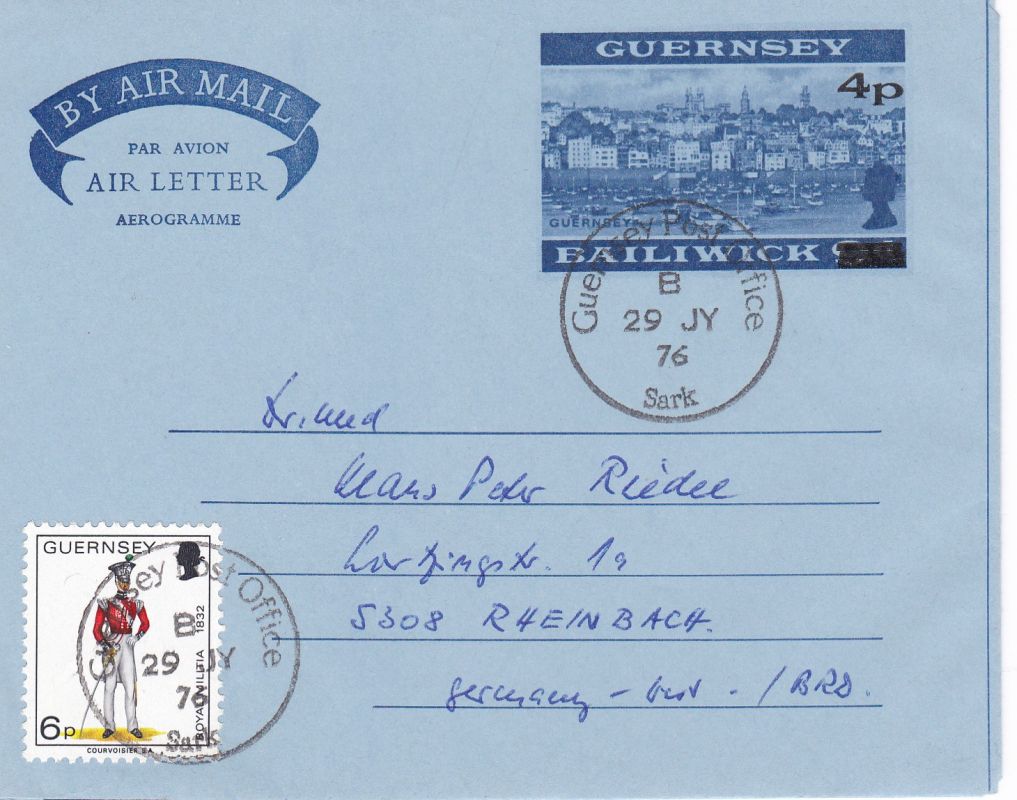 BY AIR MAIL
PAR AVION
AIR LETTER
AEROGRAMME
GUERNSEY
4p
GUERNSEY
BAILIWICK
Guernsey Post Office
B
29 JY
76
Sark
Hans Peter Riedel
Lortzingstr. 1a
5308 RHEINBACH.
Germany - West - /BRD.
GUERNSEY
ROYAL MILITIA 1832
6p
COURVOISIER S.A.
Guernsey Post Office
B
29 JY
76
Sark